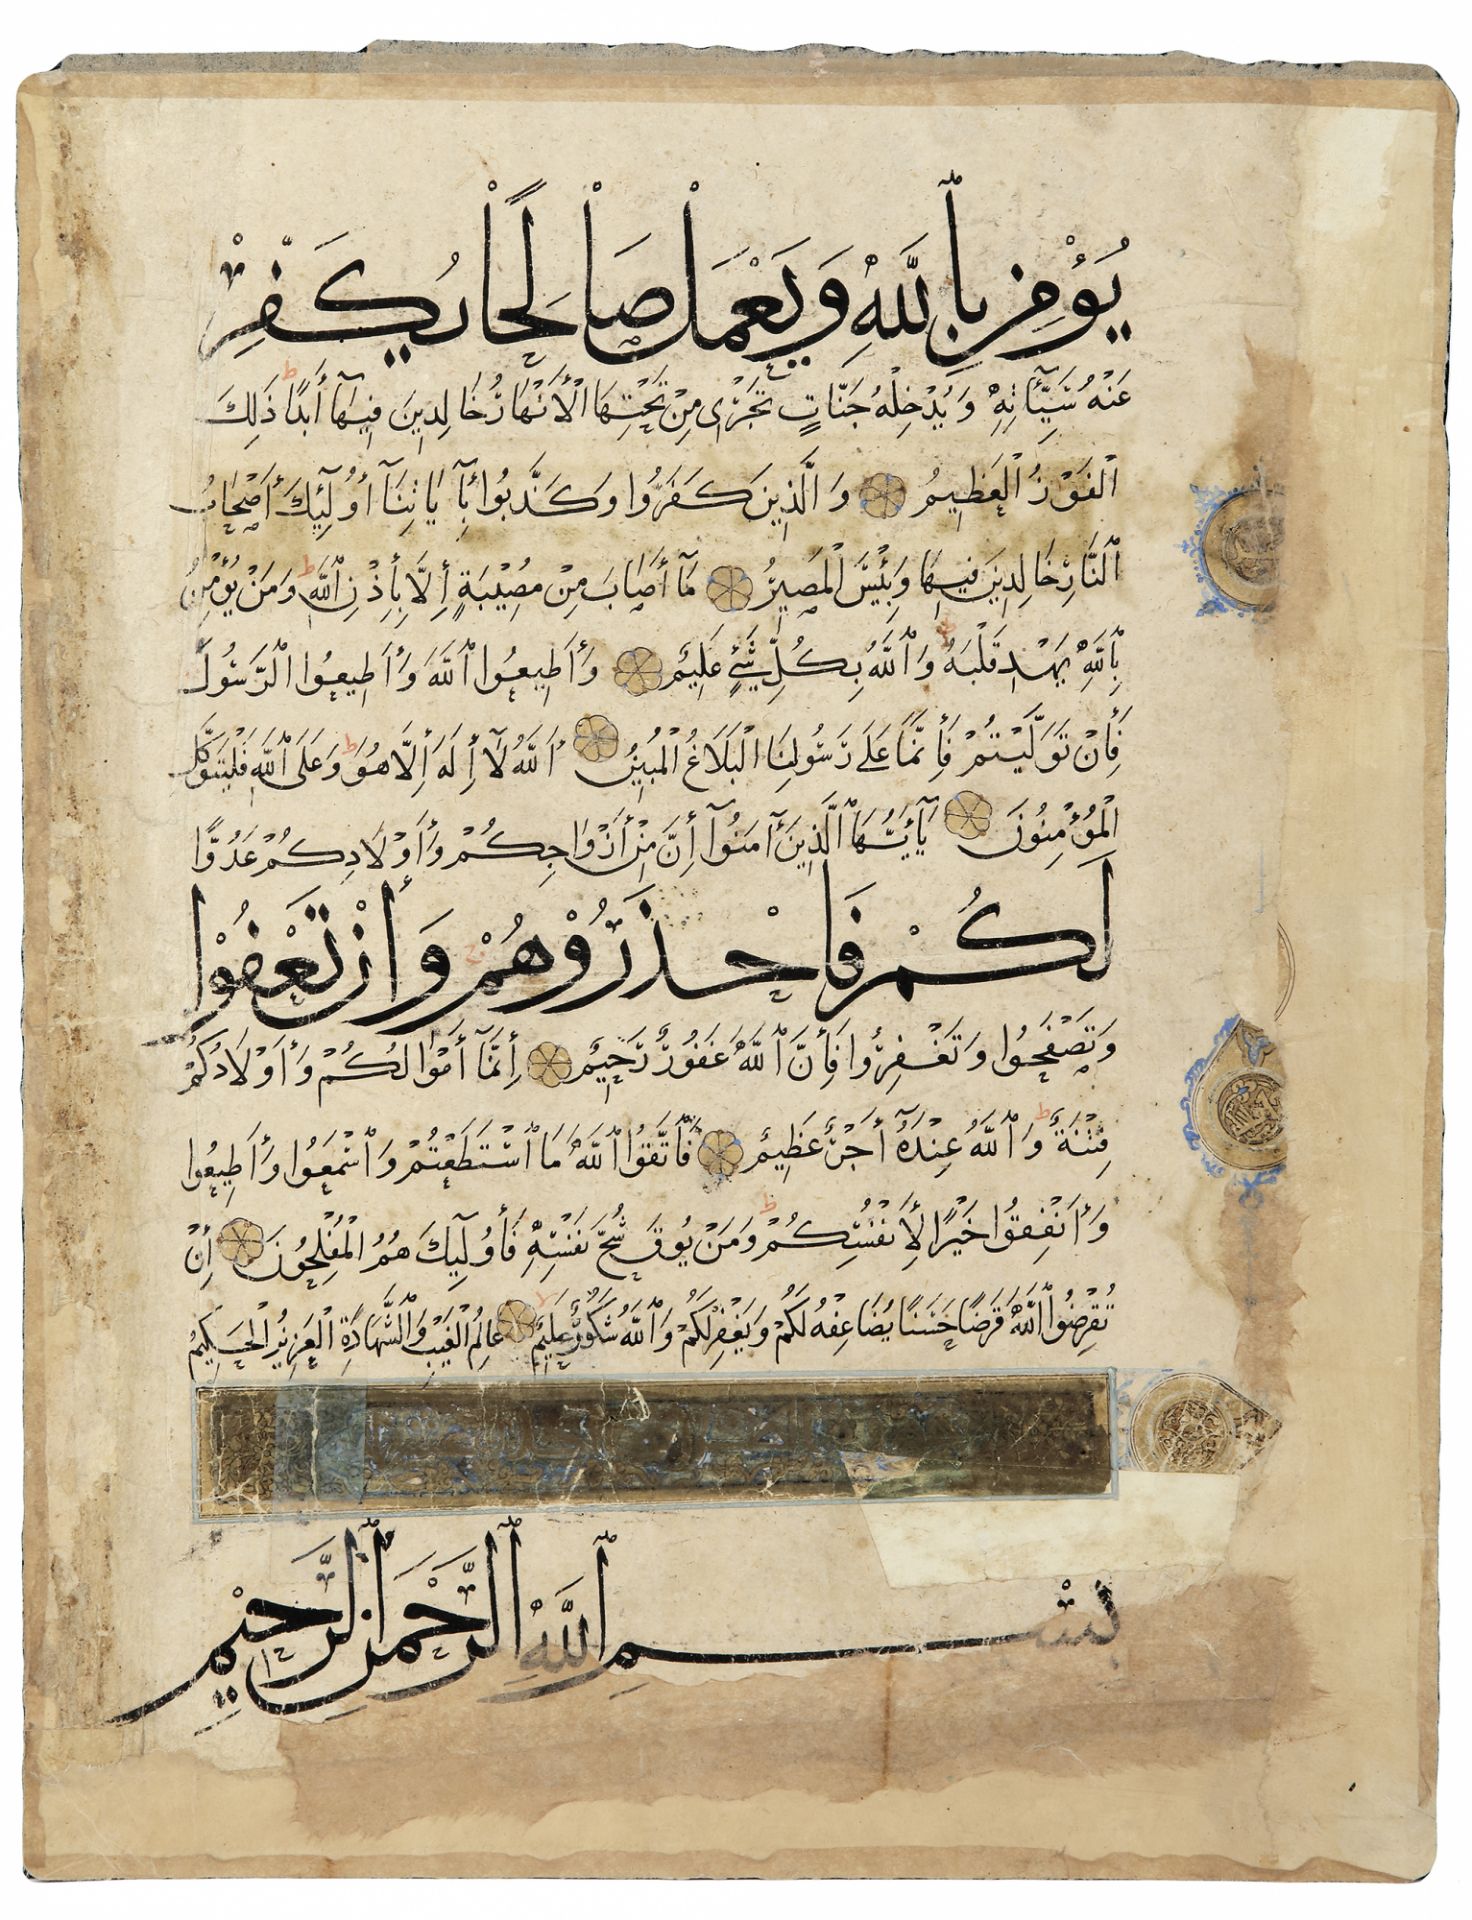 يُؤْمِنْ بِٱللَّهِ وَيَعْمَلْ صَالِحًا يُكَفِّرْ
عَنْهُ سَيِّئَاتِهِ وَيُدْخِلْهُ جَنَّاتٍ تَجْرِي مِنْ تَحْتِهَا ٱلْأَنْهَارُ خَالِدِينَ فِيهَآ أَبَدًا ط ذَلِكَ
ٱلْفَوْزُ ٱلْعَظِيمُ وَٱلَّذِينَ كَفَرُوا وَكَذَّبُوا بِآيَاتِنَآ أُولَٰٓئِكَ أَصْحَابُ
ٱلنَّارِ خَالِدِينَ فِيهَا وَبِئْسَ ٱلْمَصِيرُ مَآ أَصَابَ مِنْ مُصِيبَةٍ إِلَّا بِإِذْنِ ٱللَّهِ ط وَمَنْ يُؤْمِنْ
بِٱللَّهِ يَهْدِ قَلْبَهُ ط وَٱللَّهُ بِكُلِّ شَيْءٍ عَلِيمٌ وَأَطِيعُوا ٱللَّهَ وَأَطِيعُوا ٱلرَّسُولَ
فَإِنْ تَوَلَّيْتُمْ فَإِنَّمَا عَلَى رَسُولِنَا ٱلْبَلَاغُ ٱلْمُبِينُ ٱللَّهُ لَآ إِلَهَ إِلَّا هُوَ ط وَعَلَى ٱللَّهِ فَلْيَتَوَكَّلِ
ٱلْمُؤْمِنُونَ يَآ أَيُّهَا ٱلَّذِينَ آمَنُوآ إِنَّ مِنْ أَزْوَاجِكُمْ وَأَوْلَادِكُمْ عَدُوًّا
لَكُمْ فَاحْذَرُوهُمْ وَإِنْ تَعْفُوا
وَتَصْفَحُوا وَتَغْفِرُوا فَإِنَّ ٱللَّهَ غَفُورٌ رَحِيمٌ إِنَّمَآ أَمْوَالُكُمْ وَأَوْلَادُكُمْ
فِتْنَةٌ ط وَٱللَّهُ عِنْدَهُ أَجْرٌ عَظِيمٌ فَٱتَّقُوا ٱللَّهَ مَا ٱسْتَطَعْتُمْ وَٱسْمَعُوا وَأَطِيعُوا
وَأَنْفِقُوا خَيْرًا لِأَنْفُسِكُمْ ط وَمَنْ يُوقَ شُحَّ نَفْسِهِ فَأُولَٰٓئِكَ هُمُ ٱلْمُفْلِحُونَ إِنْ
تُقْرِضُوا ٱللَّهَ قَرْضًا حَسَنًا يُضَاعِفْهُ لَكُمْ وَيَغْفِرْ لَكُمْ وَٱللَّهُ شَكُورٌ حَلِيمٌ عَالِمُ ٱلْغَيْبِ وَٱلشَّهَادَةِ ٱلْعَزِيزُ ٱلْحَكِيمُ
بِسْمِ ٱللَّهِ ٱلرَّحْمَنِ ٱلرَّحِيمِ